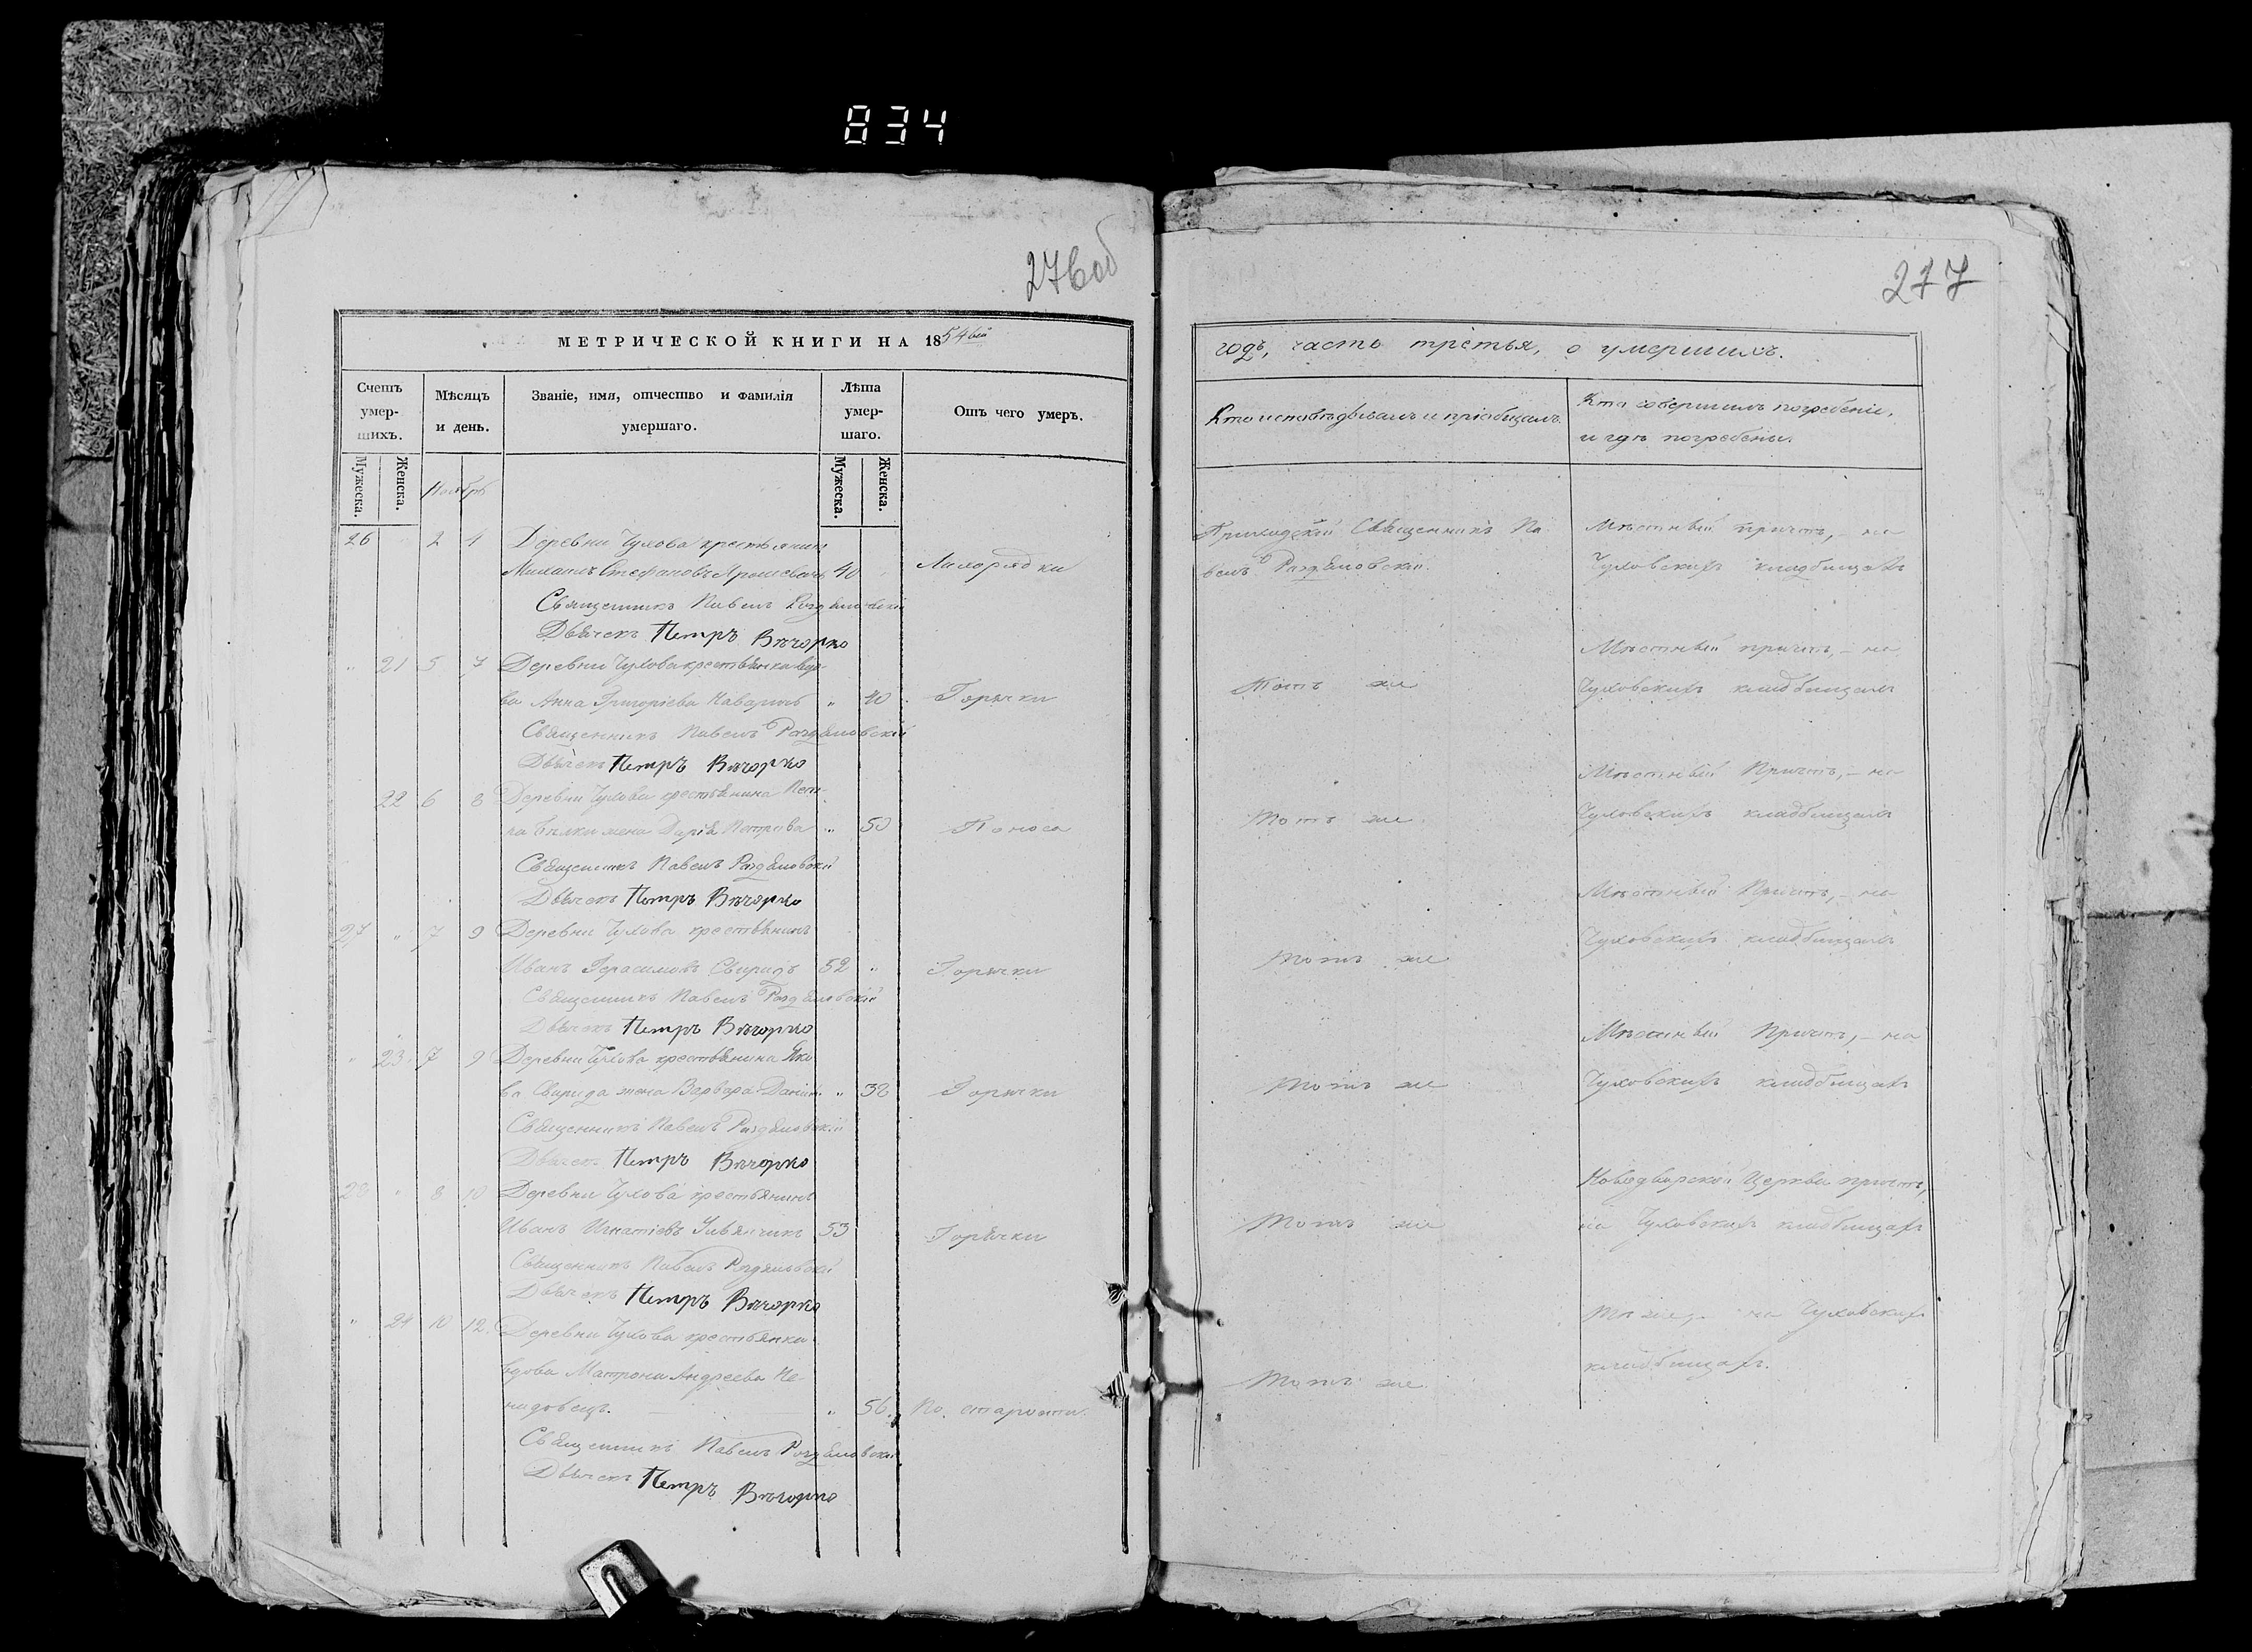 834
276об
277
МЕТРИЧЕСКОЙ КНИГИ НА 1854ый
годъ, часть третья, о умершихъ.
Счетъ умер-шихъ.
Мѣсяцъ и день.
Званіе, имя, отчество и фамилія умершаго.
Лѣта умер-шаго.
Отъ чего умеръ.
Кто исповѣдывалъ и пріобщалъ.
Кто совершилъ погребеніе,
и гдѣ погребены.
Мужеска.
Женска.
Мужеска.
Женска.
Ноябрь
26 2 4 Деревни Чухова крестьянинъ
Михаилъ Стефановъ Ярошевичъ 40 Лихорадки
Священникъ Павелъ Раздяловскій
Дьячекъ Петръ Вѣчорко
Приходскій Священникъ Па
велъ Раздяловскій.
Мѣстный причтъ, – на
Чуховскихъ кладбищахъ
„ 21 5 7 Деревни Чухова крестьянка вдо-
ва Анна Григоріева „ 40 Горячки
Священникъ Павелъ Раздяловскій
Дьячекъ Петръ Вѣчорко
Тотъ же
Мѣстный причтъ, – на
Чуховскихъ кладбищахъ
22 6 8 Деревни Чухова крестьянина Пет-
ра жена Дарія Петрова „ 50 Поноса
Священникъ Павелъ Раздяловскій
Дьячекъ Петръ Вѣчорко
Тотъ же
Мѣстный Причтъ, – на
Чуховскихъ кладбищахъ
27 „ 7 9 Деревни Чухова крестьянинъ
Иванъ Герасимовъ Свиридъ 52 „ Горячки
Священникъ Павелъ Раздяловскій
Дьячекъ Петръ Вѣчорко
Тотъ же
Мѣстный Причтъ, – на
Чуховскихъ кладбищахъ
„ 23 7 9 Деревни Чухова крестьянина Яко
ва Свирида жена Варвара „ 38 Горячки
Священникъ Павелъ Раздяловскій
Дьячекъ Петръ Вѣчорко
Тотъ же
Мѣстный Причтъ, – на
Чуховскихъ кладбищахъ
28 „ 8 10 Деревни Чухова крестьянинъ
Иванъ Игнатіевъ 53 Горячки
Священникъ Павелъ Раздяловскій
Дьячекъ Петръ Вѣчорко
Тотъ же
Новодворской Церкви причтъ,
на Чуховскихъ кладбищахъ
„ 24 10 12 Деревни Чухова крестьянка
вдова Матрона Андреева Не-
мидовецъ. „ 56 По старости.
Священникъ Павелъ Раздяловскій
Дьячекъ Петръ Вѣчорко
Тотъ же
же, – на Чуховскихъ
кладбищахъ.